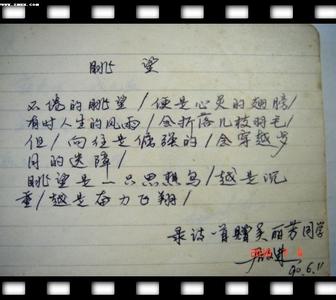 眺望
不倦的眺望/便是心灵的翅膀/
有时人生的风雨/会折落几枝羽毛
但/向往是倔强的/会穿越岁
月的迷障/
眺望是一只思想鸟/越是沉
重/越是奋力飞翔/
录诗一首赠吴丽芳同学
90.6.11